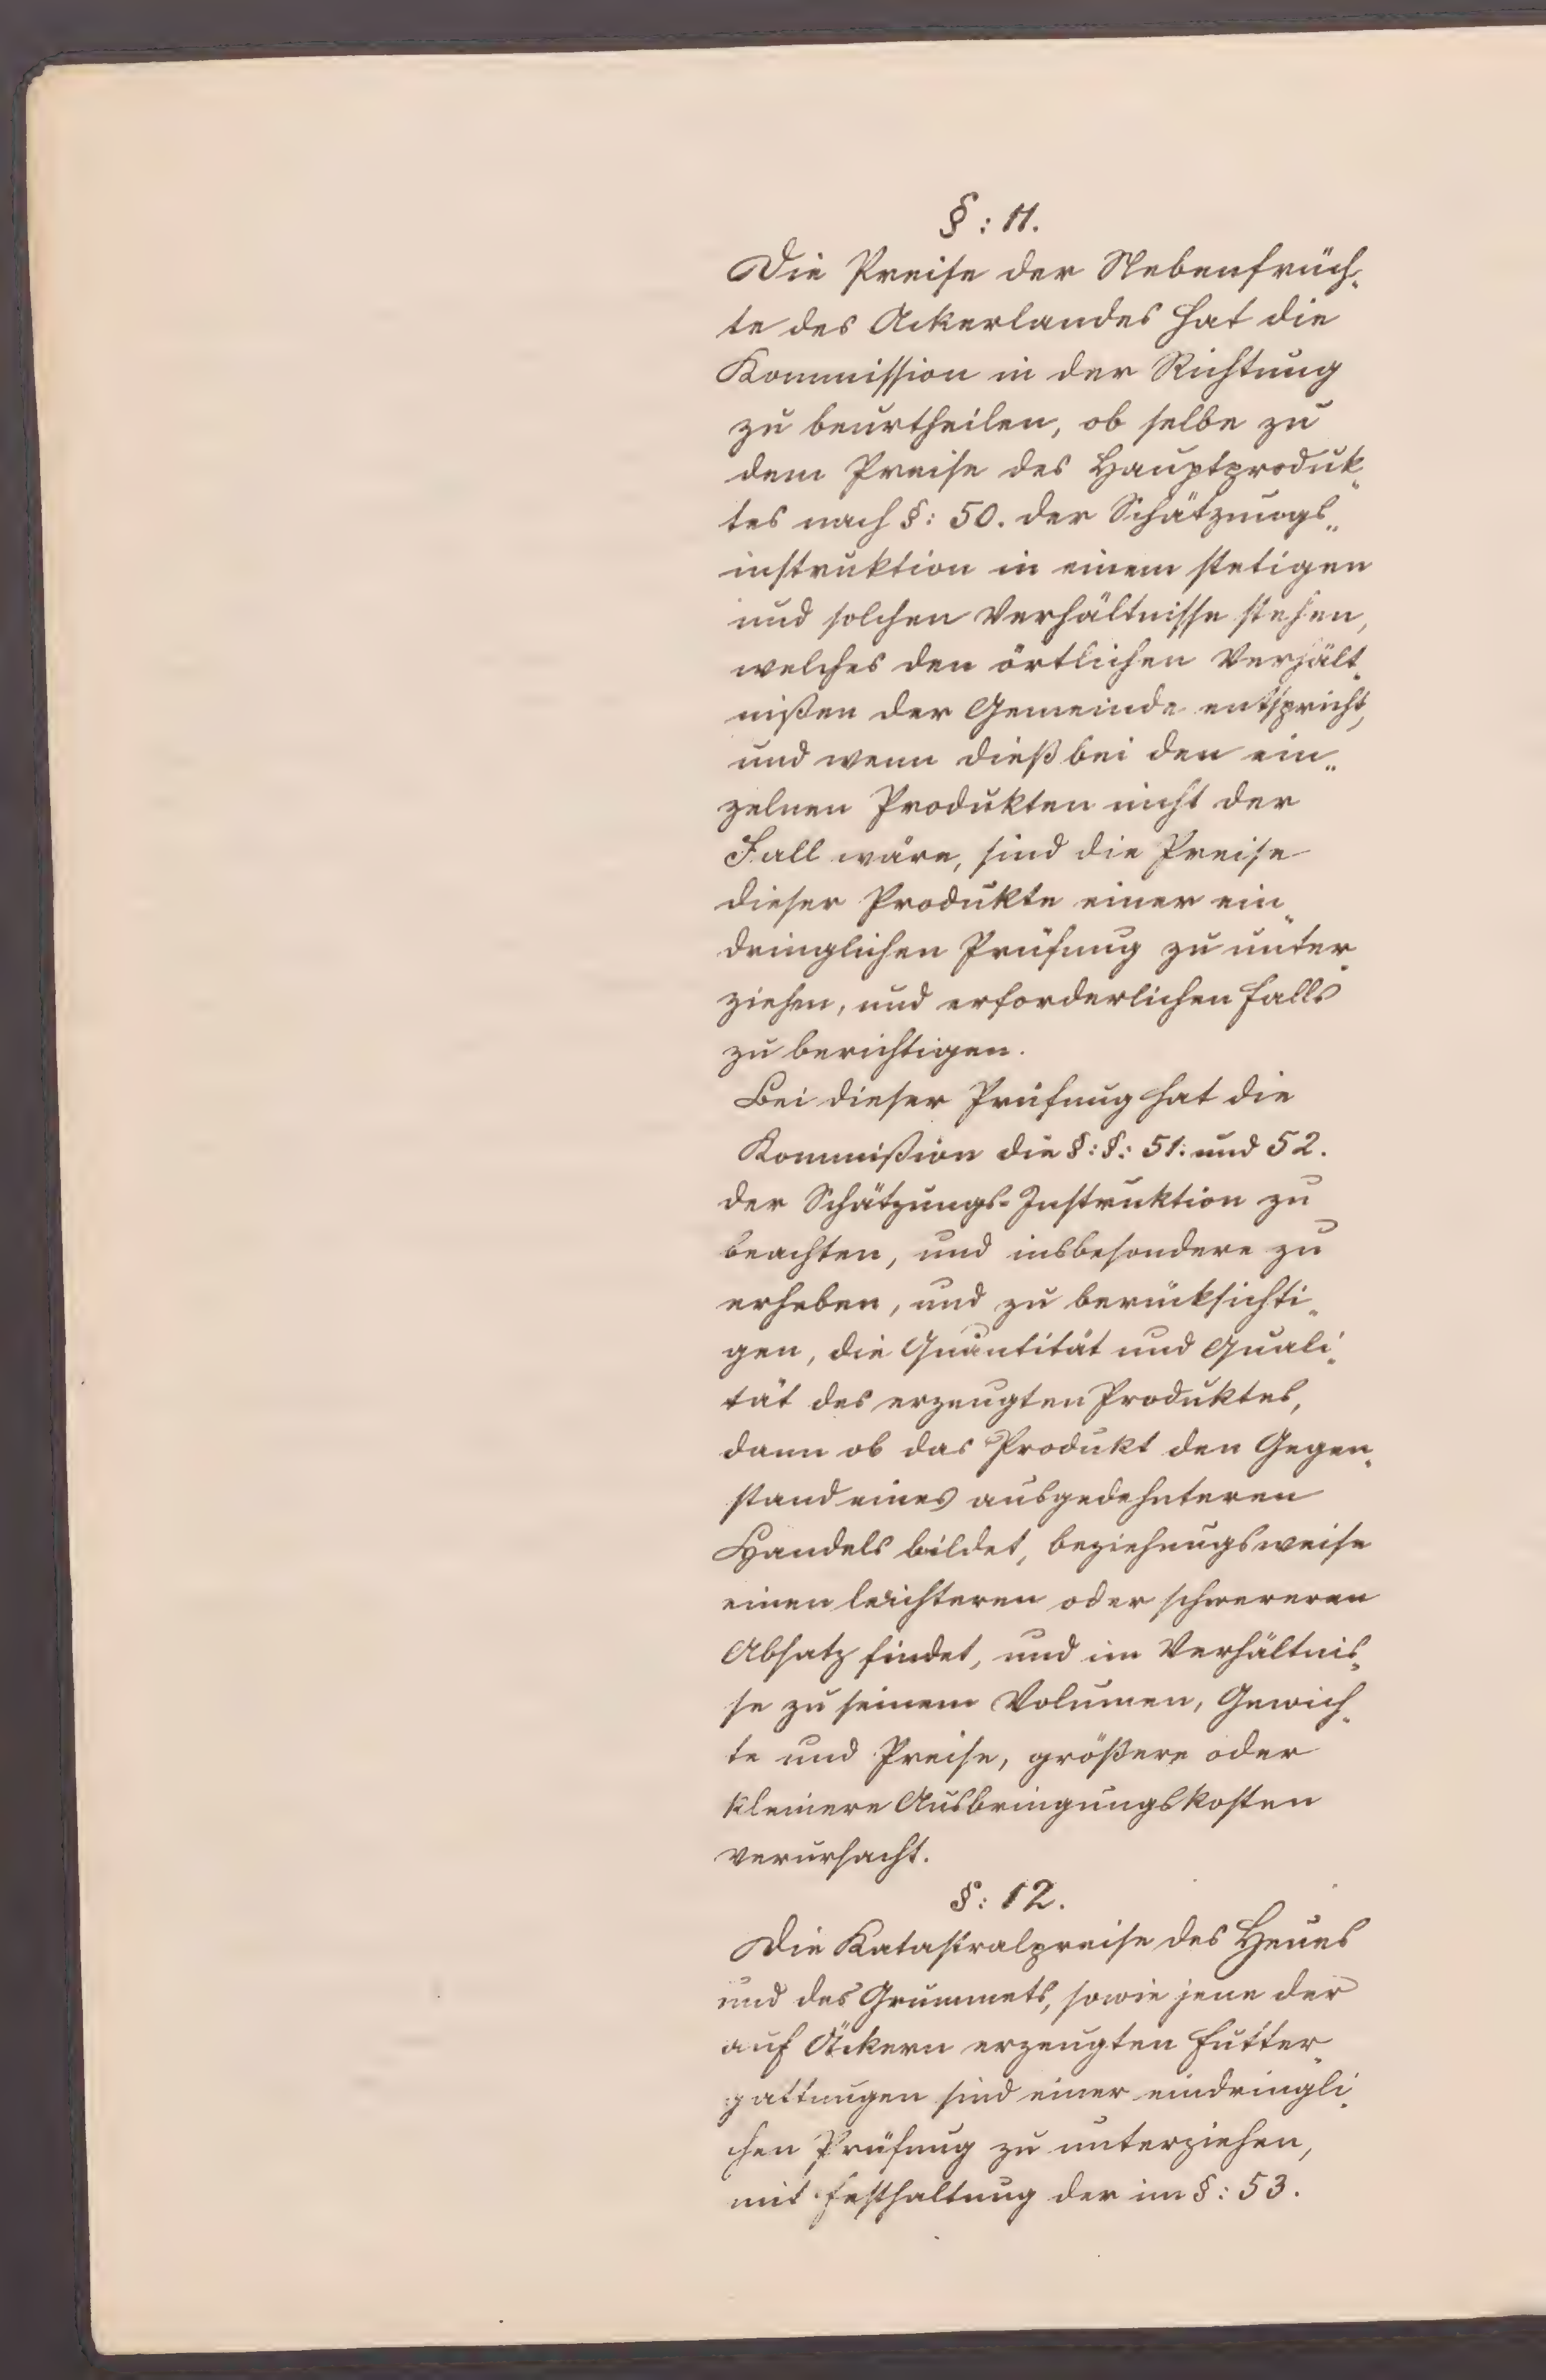 §: 11.
Die Preise der Nebenfrüch„
te des Ackerlandes hat die
Kommission in der Richtung
zu beurtheilen, ob selbe zu
dem Preise des Hauptproduk„
tes nach §: 50. der Schätzungs„
instruktion in einem stetigen
und solchen Verhältnisse stehen,
welches den örtlichen Verhält„
nißen der Gemeinde entspricht,
und wenn dieß bei den ein„
zelnen Produkten nicht der
Fall wäre, sind die Preise
dieser Produkte einer ein„
dringlichen Prüfung zu unter„
ziehen, und erforderlichen Falls
zu berichtigen.
Bei dieser Prüfung hat die
Kommißion die §:§: 51. und 52.
der Schätzungs-Instruktion zu
beachten, und insbesondere zu
erheben, und zu berücksichti„
gen, die Quantität und Quali„
tät des erzeugten Produktes,
dann ob das Produkt den Gegen„
stand eines ausgedehnteren
Handels bildet, beziehungsweise
einen leichteren oder schwereren
Absatz findet, und im Verhältnis„
se zu seinem Volumen, Gewich„
te und Preise, größere oder
kleinere Ausbringungskosten
verursacht.
§: 12.
Die Katastralpreise des Heues
und des Grummets, sowie jene der
auf Äckern erzeugten Futter„
gattungen sind einer eindringli„
chen Prüfung zu unterziehen,
mit Festhaltung der im §: 53.